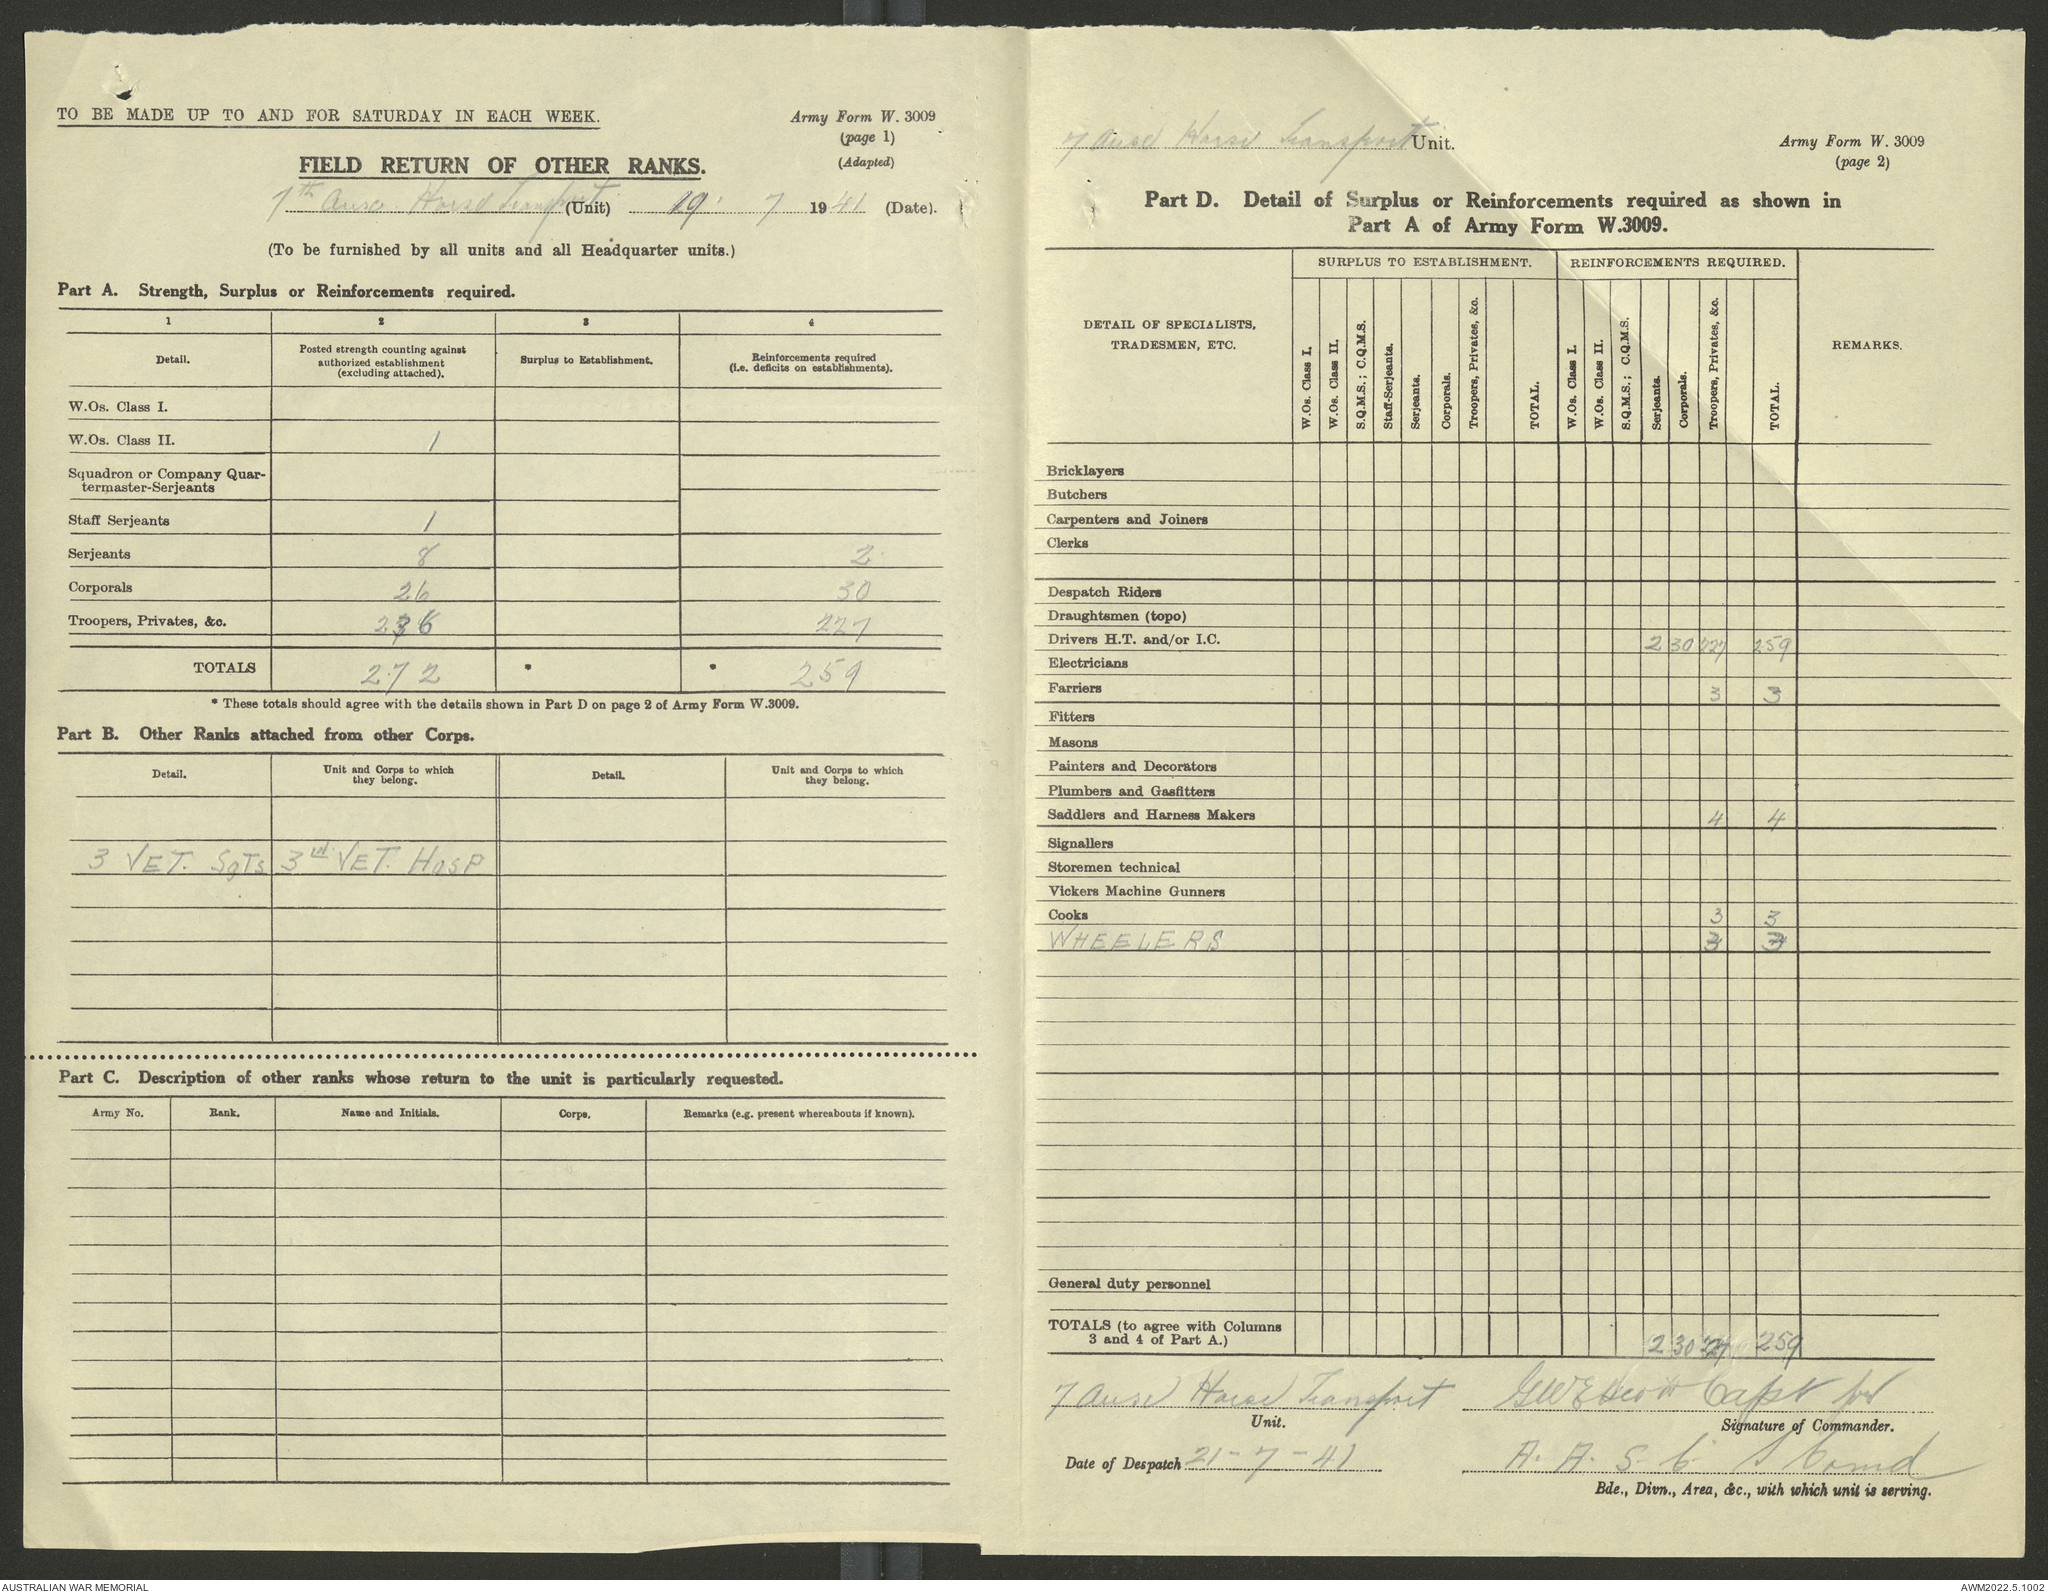 TO BE MADE UP TO AND FOR SATURDAY IN EACH WEEK.
Army Form W. 3009
(page 1)
(Adapted)
FIELD RETURN OF OTHER RANKS.
7th Horse Transport (Unit) 19 7 1941 (Date).
(To be furnished by all units and all Headquarter units.)
Part A. Strength, Surplus or Reinforcements required.
1 2 3 4
Detail. Posted strength counting against authorized establishment (excluding attached). Surplus to Establishment. Reinforcements required (i.e. deficits on establishments).
W.Os. Class I.
W.Os. Class II. 1
Squadron or Company Quar-
termaster-Serjeants
Staff Serjeants 1
Serjeants 8 2
Corporals 26 30
Troopers, Privates, &c. 236 227
TOTALS 272 * * 259
* These totals should agree with the details shown in Part D on page 2 of Army Form W.3009.
Part B. Other Ranks attached from other Corps.
Detail. Unit and Corps to which they belong. Detail. Unit and Corps to which they belong.
3 VET. SGTS 3rd VET. HOSP
Part C. Description of other ranks whose return to the unit is particularly requested.
Army No. Rank. Name and Initials. Corps. Remarks (e.g. present whereabouts if known).
7 Horse Transport Unit.
Army Form W. 3009
(page 2)
Part D. Detail of Surplus or Reinforcements required as shown in
Part A of Army Form W.3009.
SURPLUS TO ESTABLISHMENT. REINFORCEMENTS REQUIRED.
DETAIL OF SPECIALISTS,
TRADESMEN, ETC.
W.Os. Class I. W.Os. Class II. S.Q.M.S.; C.Q.M.S. Staff-Serjeants. Serjeants. Corporals. Troopers, Privates, &c. TOTAL. W.Os. Class I. W.Os. Class II. S.Q.M.S.; C.Q.M.S. Serjeants. Corporals. Troopers, Privates, &c. TOTAL. REMARKS.
Bricklayers
Butchers
Carpenters and Joiners
Clerks
Despatch Riders
Draughtsmen (topo)
Drivers H.T. and/or I.C. 2 30 227 259
Electricians
Farriers 3 3
Fitters
Masons
Painters and Decorators
Plumbers and Gasfitters
Saddlers and Harness Makers 4 4
Signallers
Storemen technical
Vickers Machine Gunners
Cooks 3 3
WHEELERS
General duty personnel
TOTALS (to agree with Columns
3 and 4 of Part A.) 2 30 259
7 Horse Transport Capt for
Unit. Signature of Commander.
Date of Despatch 21-7-41 A. A. S. C.
Bde., Divn., Area, &c., with which unit is serving.
AUSTRALIAN WAR MEMORIAL
AWM2022.5.1002